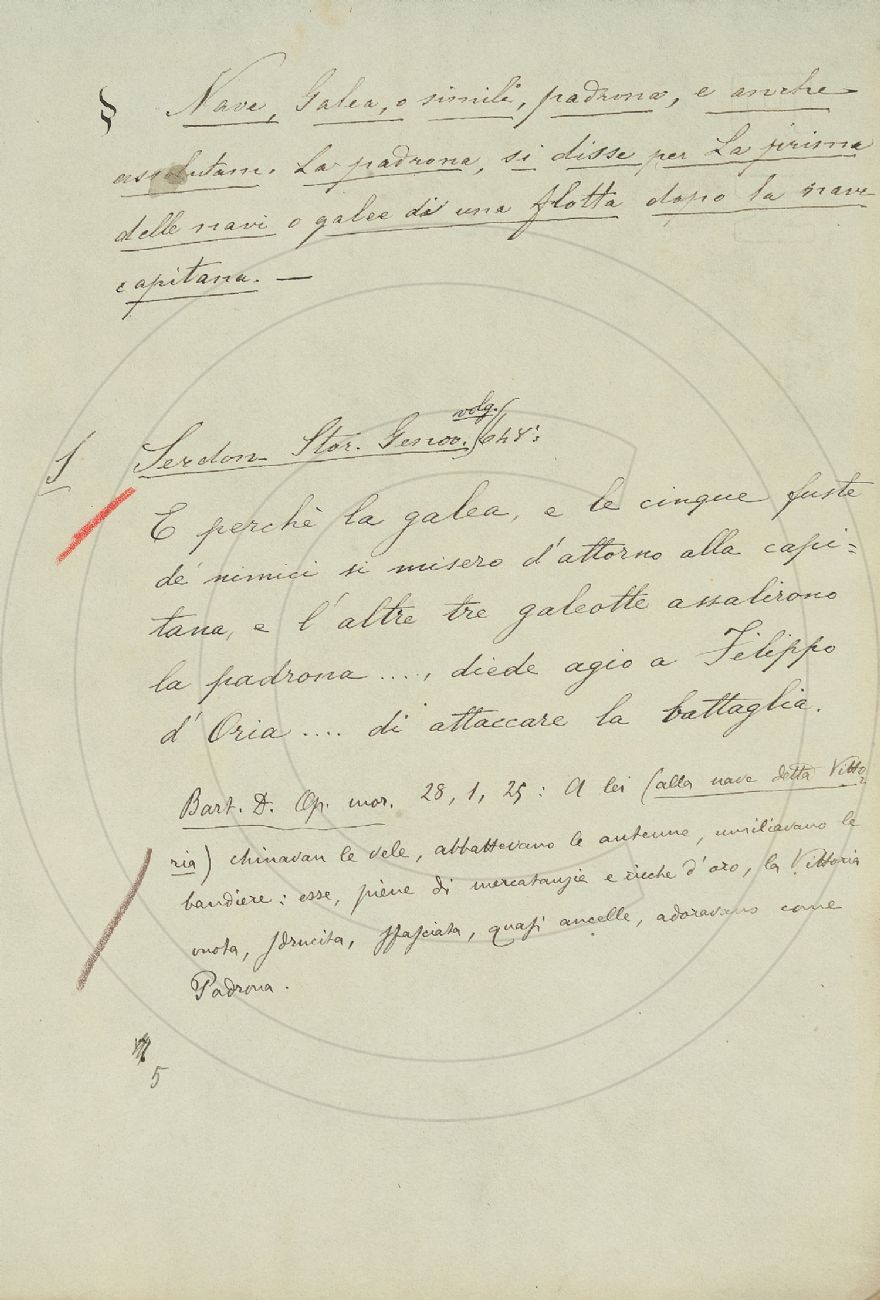 § Nave, Galea, o simili, padrona, e anche
assolutam. La padrona, si disse per La prima
delle navi o galee di una flotta dopo la nave
capitana. —
volg.
S Serdon. Stor. Genov. 648:
E perchè la galea, e le cinque fuste
de' nimici si misero d'attorno alla capi=
tana, e l'altre tre galeotte assalirono
la padrona ...., diede agio a Filippo
d'Oria .... di attaccare la battaglia.
Bart. D. Op. mor. 28, 1, 25: A lei (alla nave detta Vitto-
ria) chinavan le vele, abbattevano le antenne, umiliavano le
bandiere: esse, piene di mercatanzie e ricche d'oro, la Vittoria
vuota, sdrucita, sfasciata, quasi ancelle, adoravano come
Padrona.
5